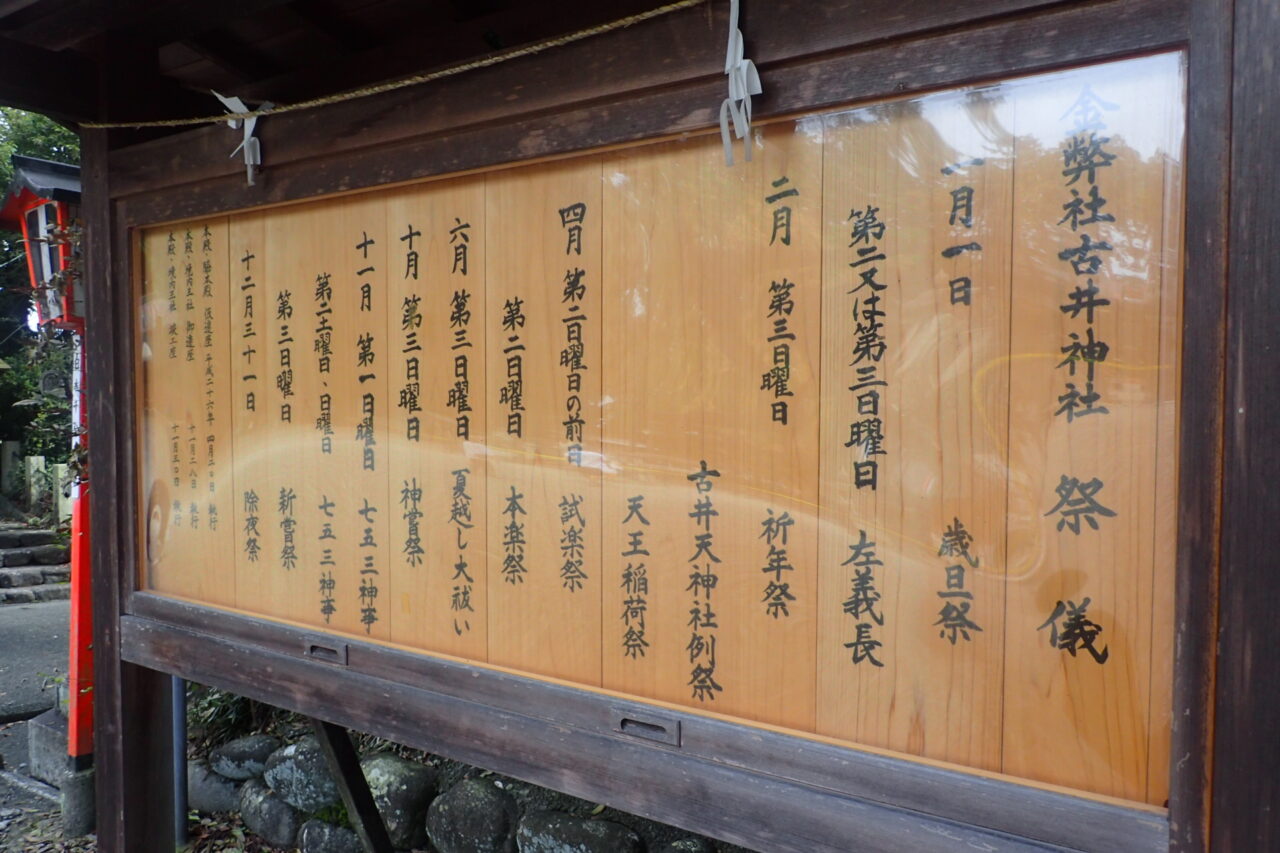 金弊社古井神社 祭 儀
一月一日 歳旦祭
第二又は第三日曜日 左義長
二月 第三日曜日 祈年祭
古井天神社例祭
天王稲荷祭
四月 第二日曜日の前日 試楽祭
第二日曜日 本楽祭
六月 第三日曜日 夏越し大祓い
十月 第三日曜日 神嘗祭
十一月 第一日曜日 七五三神事
第二土曜日、日曜日 七五三神事
第三日曜日 新嘗祭
十二月三十一日 除夜祭
本殿・脇本殿 仮遷座 平成二十六年 四月二0日 執行
本殿・境内五社 御遷座 十一月二八日 執行
本殿・境内五社 竣工座 十一月三0日 執行